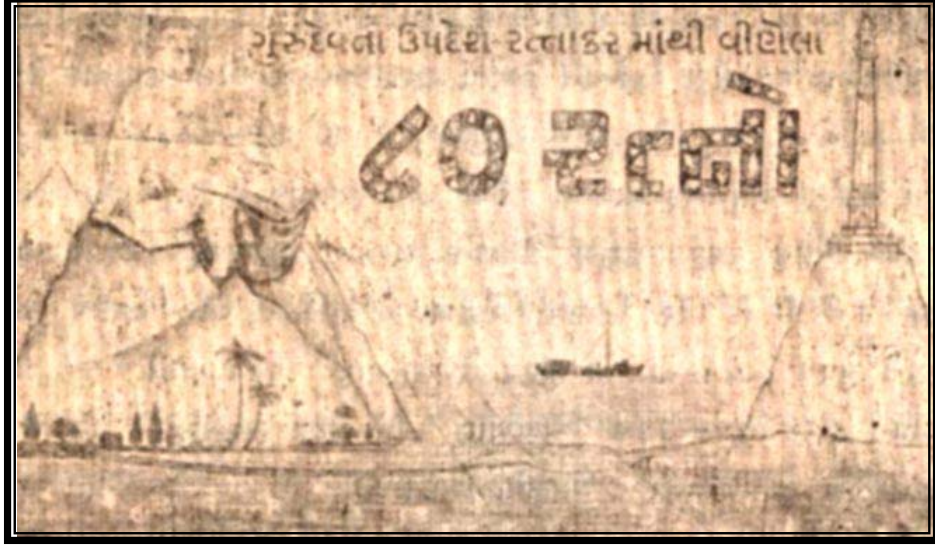 ગુરુદેવના ઉપદેશ-રત્નાકર માંથી વીણેલા
૮૦ રત્નો